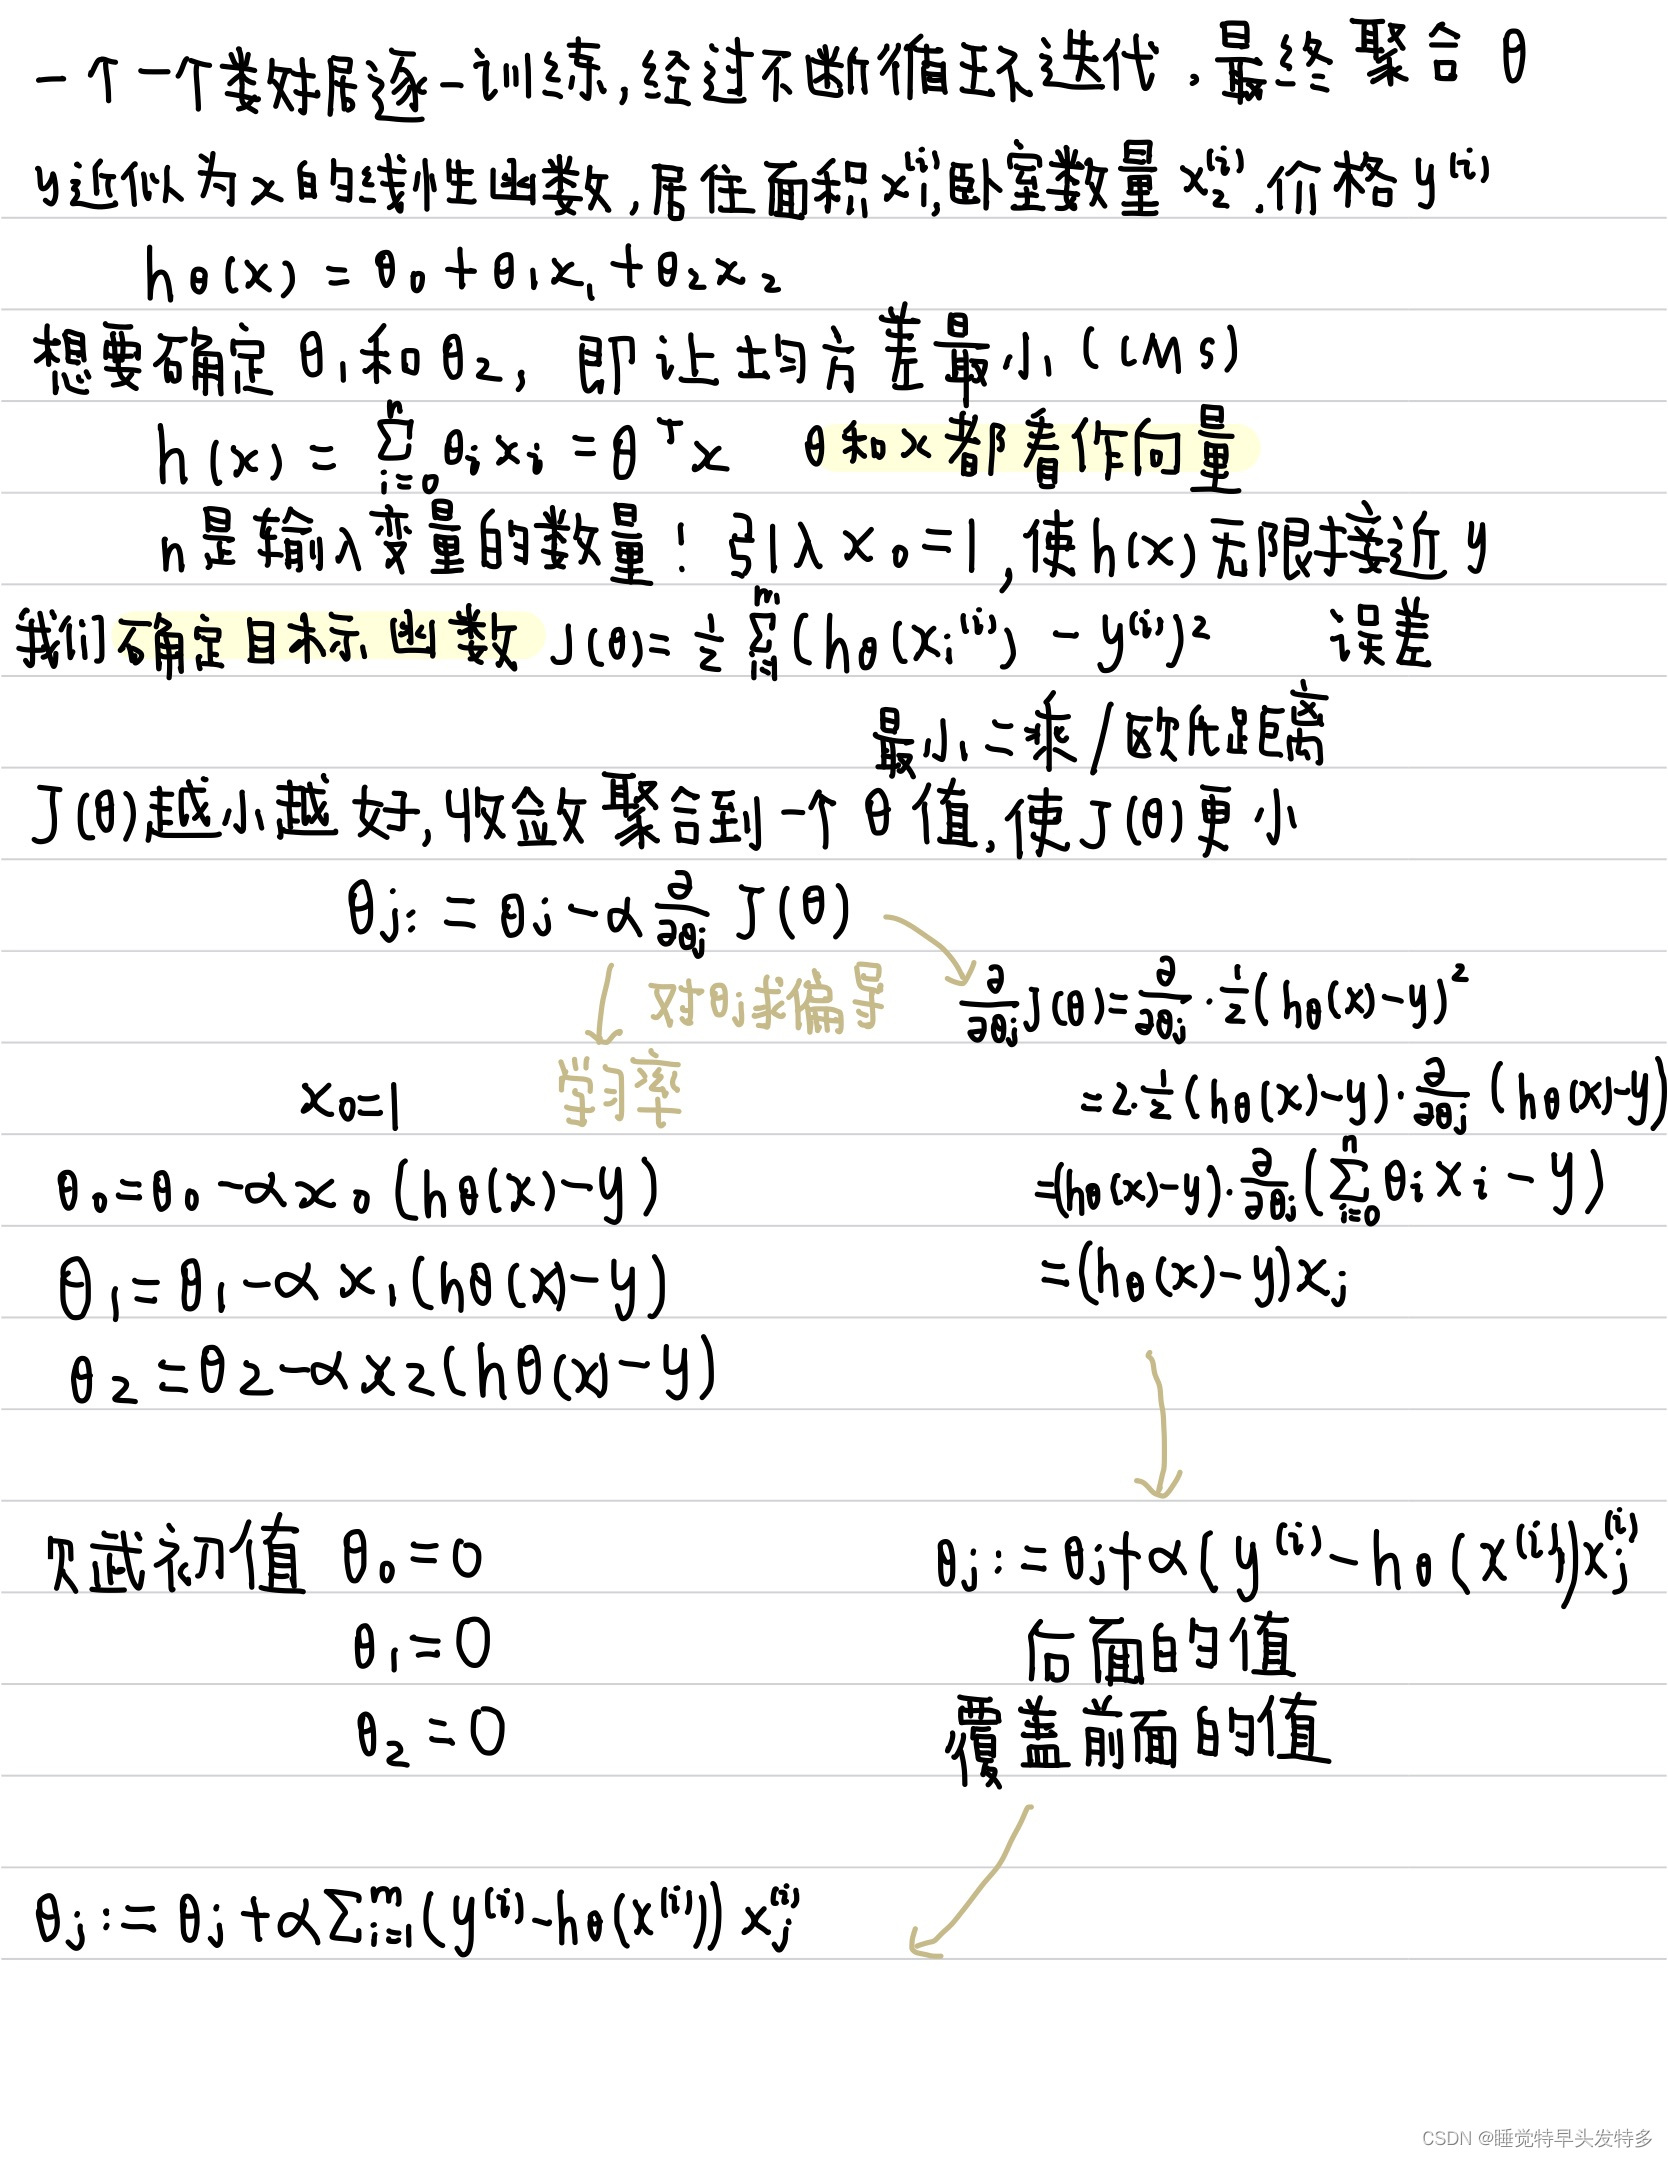 一个一个数据逐一训练,经过不断循环迭代,最终聚合 θ
y近似为x的线性函数,居住面积x₁⁽ⁱ⁾,卧室数量 x₂⁽ⁱ⁾.价格 y⁽ⁱ⁾
hθ(x) = θ₀+θ₁x₁+θ₂x₂
想要确定 θ₁和θ₂, 即让均方差最小(LMS)
h(x) = ∑ⁿᵢ₌₀ θᵢxᵢ = θᵀx θ和x都看作向量
n是输入变量的数量! 引入x₀=1,使h(x)无限接近y
我们确定目标函数 J(θ)= ½ ∑ᵐᵢ₌₁(hθ(xᵢ⁽ⁱ⁾) - y⁽ⁱ⁾)² 误差
最小二乘/欧氏距离
J(θ)越小越好,收敛聚合到一个θ值,使J(θ)更小
θj: = θj - α ∂/∂θj J(θ)
对θj求偏导
学习率
∂/∂θj J(θ)= ∂/∂θj · ½(hθ(x)-y)²
=2·½(hθ(x)-y)·∂/∂θj (hθ(x)-y)
=(hθ(x)-y)·∂/∂θj(∑ⁿᵢ₌₀ θᵢxᵢ - y)
=(hθ(x)-y)xj
x₀=1
θ₀=θ₀-αx₀(hθ(x)-y)
θ₁=θ₁-αx₁(hθ(x)-y)
θ₂=θ₂-αx₂(hθ(x)-y)
初值 θ₀=0
θ₁=0
θ₂=0
θj:=θj+α(y⁽ⁱ⁾-hθ(x⁽ⁱ⁾))xj⁽ⁱ⁾
后面的值
覆盖前面的值
θj:=θj+α∑ᵐᵢ₌₁(y⁽ⁱ⁾-hθ(x⁽ⁱ⁾))xj⁽ⁱ⁾
CSDN @睡觉特早头发特多